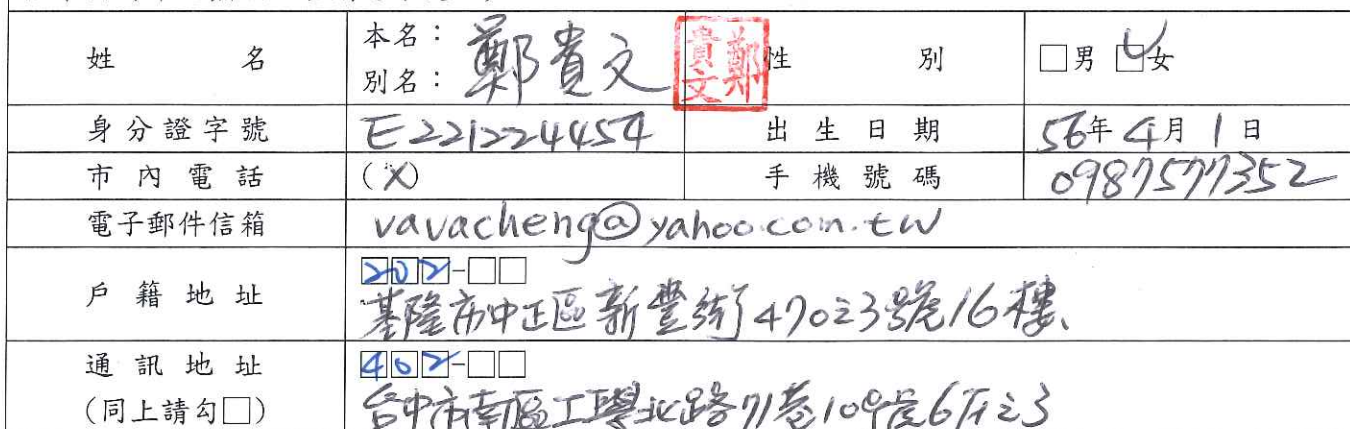 姓名 本名： 別名： 鄭貴文 鄭貴文 性別 □男 ☑女
身分證字號 E221224454 出生日期 56年4月1日
市內電話 (X) 手機號碼 0987577352
電子郵件信箱 vavacheng@yahoo.com.tw
戶籍地址 202-□□
基隆市中正區新豐街470之3號16樓
通訊地址 402-□□
(同上請勾□) 台中市南區工學北路71巷10號6F之3